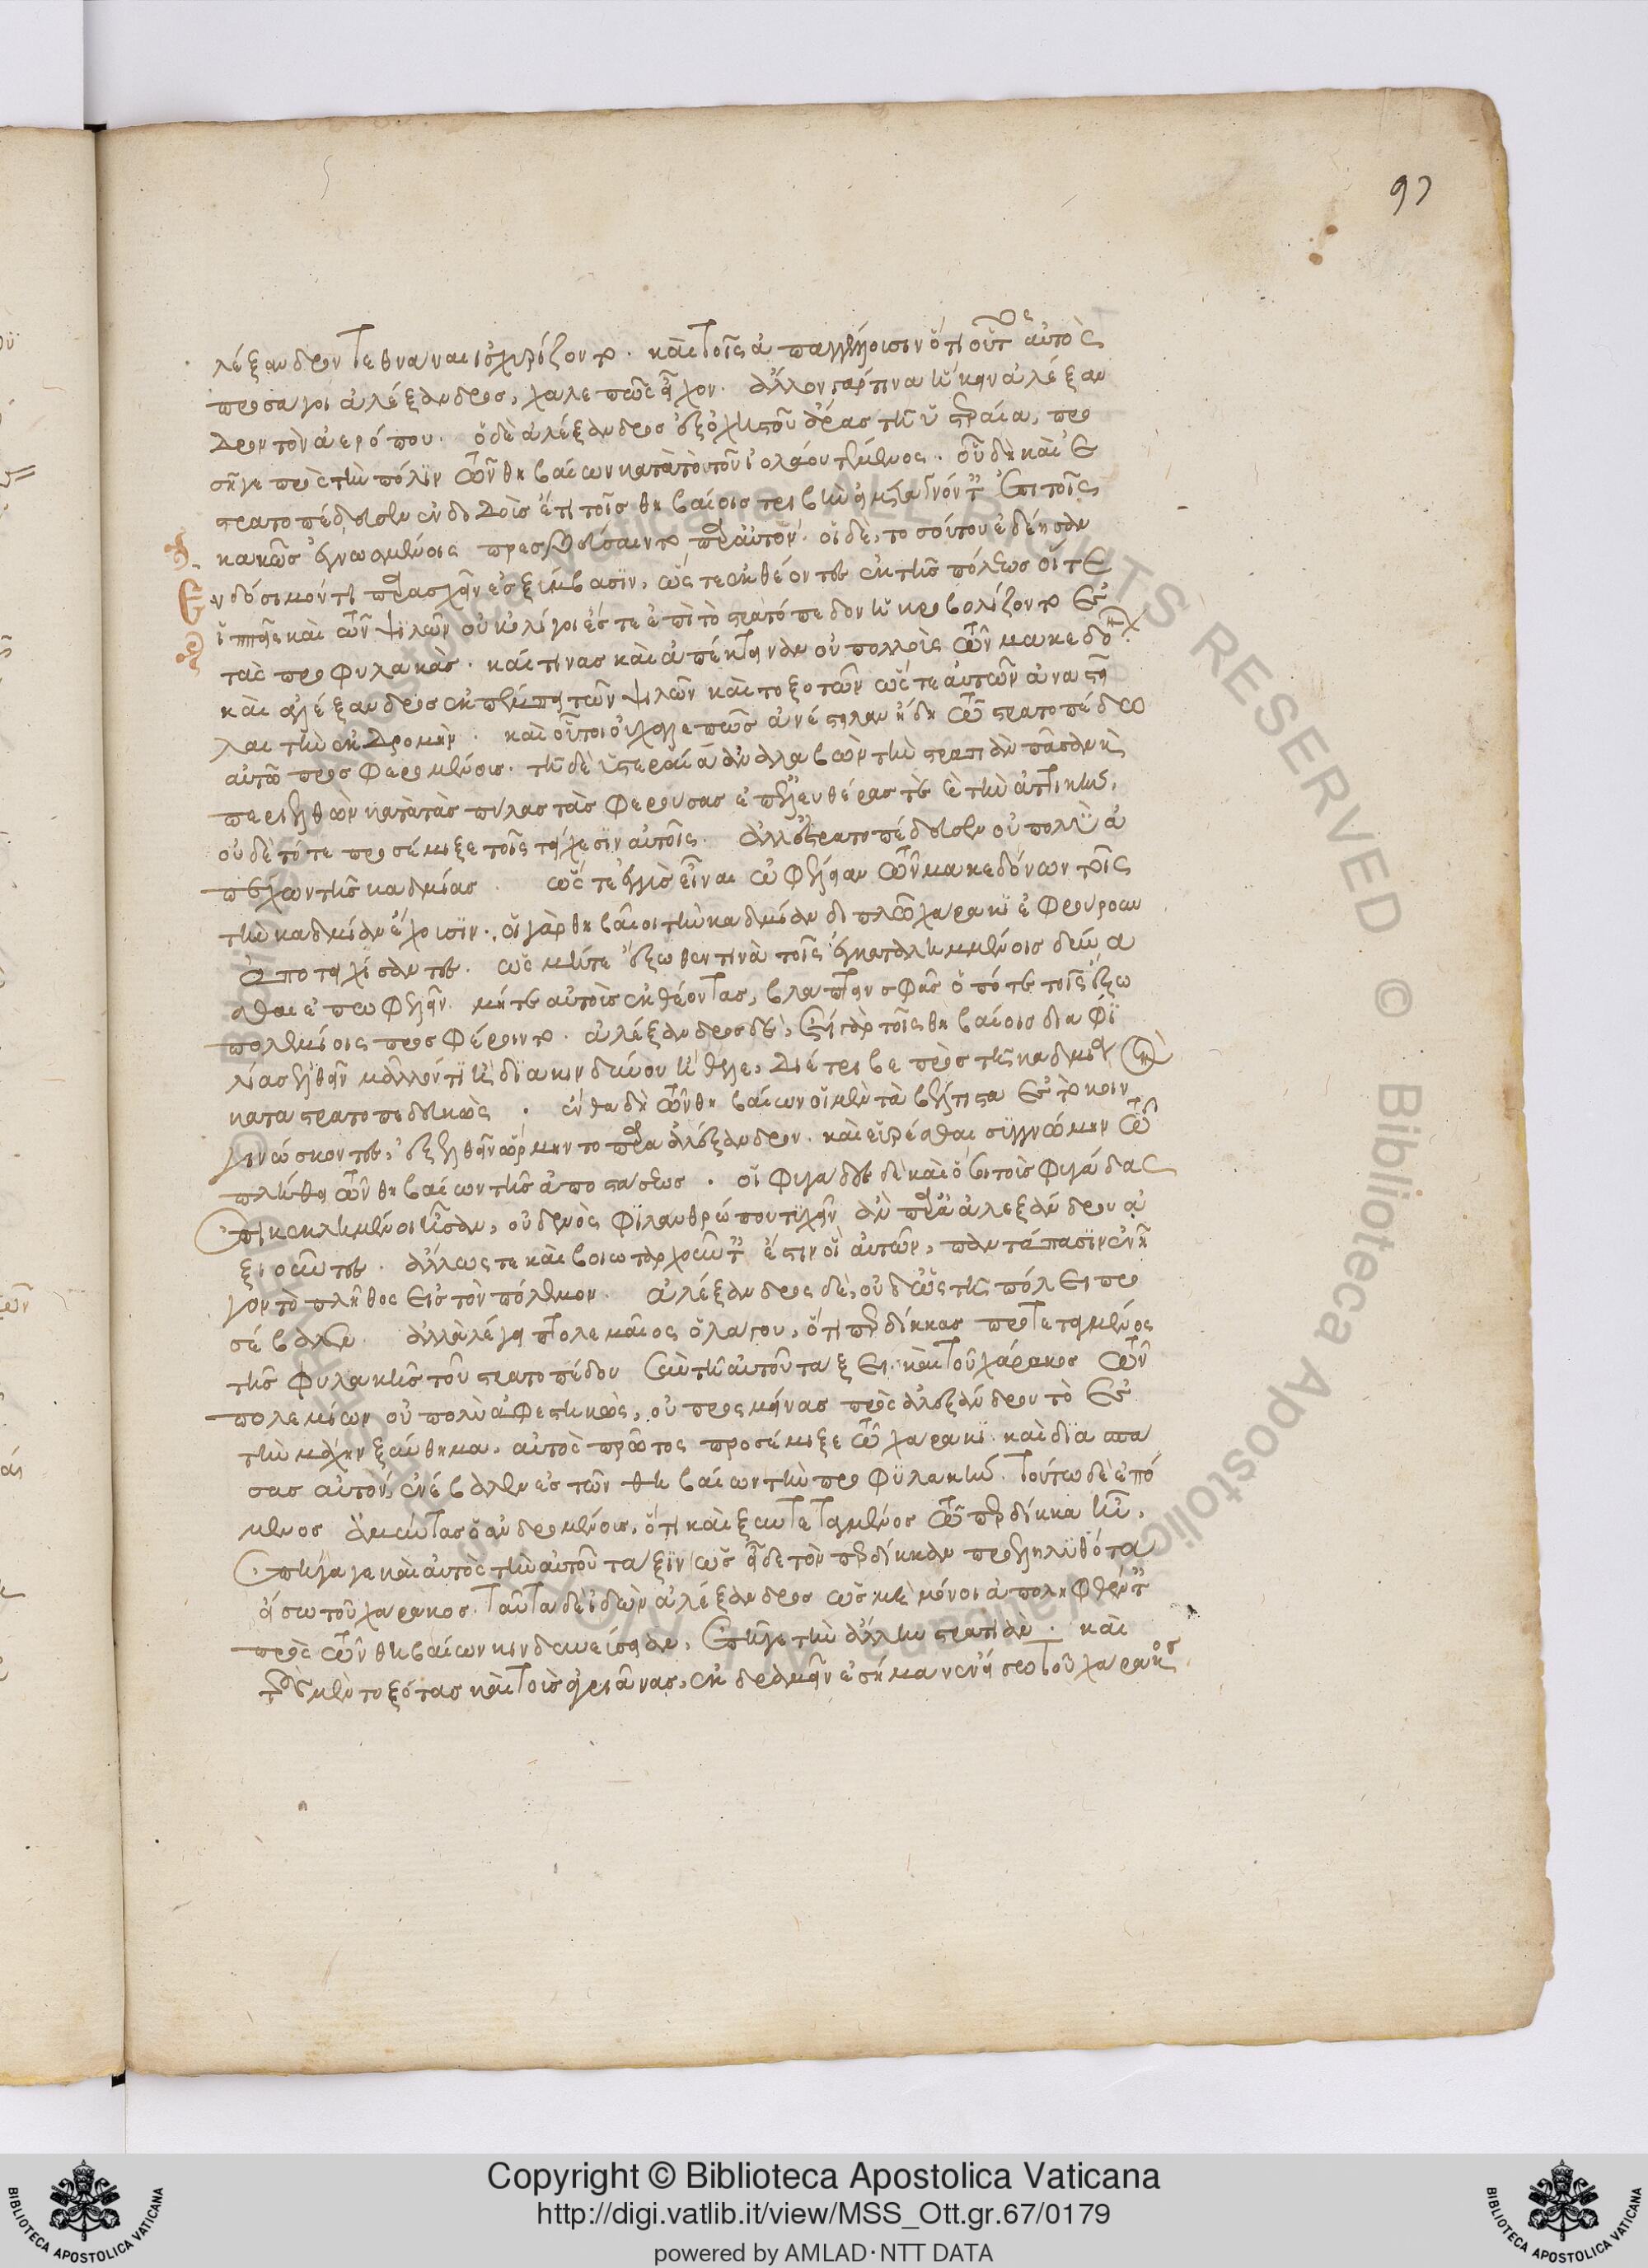 λέξανδρον τεθνάναι ἰσχυρίζοντο. καὶ τοῖς ἀπαγγέλουσιν ὅτι οὗτος αὐτὸς
προσάγει ἀλέξανδρος, χαλεπῶς εἶχον. ἄλλον γάρ τινα ἥκειν ἀλέξαν
δρον τὸν ἀερόπου. ὁ δὲ ἀλέξανδρος ἐξ ὀχηστοῦ ἄρας τῇ ὑστεραία, προ
σῆγε πρὸς τὴν πόλϊν τῶν θηβαίων κατὰ τὸ τοῦ ϊολάου τέμενος. οὗ δὴ καὶ ἐ
στρατοπέδευσεν ἐνδιδοὺς ἔτι τοῖς θηβαίοις τριβὴν εἰ μεταγνόντες ἐπὶ τοῖς
κακῶς ἐγνωσμένοις πρεσβεύσαιντο παρ' αὐτόν. οἱ δὲ, τοσούτου ἐδέησαν
ἐνδόσιμόν τι παρασχεῖν ἐς ξύμβασϊν, ὥστε ἐκθέοντες ἐκ τῆς πόλεως οἵ τε
ἱππεῖς καὶ τῶν ψιλῶν οὐκ ὀλίγοι ἔστε ἐπὶ τὸ στρατόπεδον ἠκροβολίζοντο ἐς
τὰς προφυλακάς. καί τινας καὶ ἀπέκτειναν οὐ πολλοὺς τῶν μακεδόνων
καὶ ἀλέξανδρος ἐκπέμπει τῶν ψιλῶν καὶ τοξοτῶν ὥστε αὐτῶν ἀναστεῖ
λαι τὴν ἐκδρομήν. καὶ οὗτοι οὐ χαλεπῶς ἀνέστειλαν ἤδη τῶ στρατοπέδω
αὐτῶ προσφερομένους. τῇ δὲ ὑστεραία ἀναλαβὼν τὴν στρατιὰν πᾶσαν καὶ
περιελθὼν κατὰ τὰς πύλας τὰς φερούσας ἐπ' ἐλευθέρας τὲ καὶ τὴν ἀττικὴν,
οὐδὲ τότε προσέμιξε τοῖς τείχεσϊν αὐτοῖς. ἀλλ' ἐστρατοπέδευσεν οὐ πολὺ ἀ
πέχων τῆς καδμείας. ὥστε ἐγγὺς εἶναι ὠφέλειαν τῶν μακεδόνων τοῖς
τὴν καδμείαν ἔχουσϊν. οἱ γὰρ θηβαῖοι τὴν καδμείαν διπλῶ χάρακϊ ἐφρούρουν
ἀποτειχίσαντες. ὡς μήτε ἔξωθεν τινὰ τοῖς ἐγκατειλημμένοις δύνα
σθαι ἐπωφελεῖν. μήτε αὐτοὺς ἐκθέοντας, βλάπτειν σφᾶς ὁπότε τοῖς ἔξω
πολεμίοις προσφέροιντο. ἀλέξανδρος δὲ, ἔτι γὰρ τοῖς θηβαίοις διὰ φϊ
λίας ἐλθεῖν μᾶλλόν τι ἢ διὰ κινδύνου ἤθελε, διέτριβε πρὸς τῇ καδμεία
κατεστρατοπεδευκὼς. ἔνθα δὴ τῶν θηβαίων οἱ μὲν τὰ βέλτιστα ἐς τὸ κοιν
γινώσκοντες, ἐξελθεῖν ὥρμηντο παρὰ ἀλέξανδρον. καὶ εὑρέσθαι συγγνώμην τῶ
πλήθει τῶν θηβαίων τῆς ἀποστάσεως. οἱ φυγάδες δὲ καὶ ὅσοι τοὺς φυγάδας
ἐπικεκλημένοι ἦσαν, οὐδενὸς φϊλανθρώπου τυχεῖν ἂν παρ' ἀλεξάνδρου ἀ
ξιοῦντες. ἄλλως τε καὶ βοιωταρχοῦντες ἔστιν οἳ αὐτῶν, παντάπασϊν ἐνῆ
γον τὸ πλῆθος εἰς τὸν πόλεμον. ἀλέξανδρος δὲ, οὐδ' ὣς τῇ πόλει προ
σέβαλεν. ἀλλὰ λέγει πτολεμαῖος ὁ λάγου, ὅτι περδίκκας προτεταγμένος
τῆς φυλακῆς τοῦ στρατοπέδου σὺν τῇ αὐτοῦ τάξει. καὶ τοῦ χάρακος τῶν
πολεμίων οὐ πολὺ ἀφεστηκὼς, οὐ προσμείνας πρὸς ἀλεξάνδρου τὸ ἐς
τὴν μάχην ξύνθημα. αὐτὸς πρῶτος προσέμιξε τῶ χάρακϊ. καὶ διασπά
σας αὐτὸν, ἐνέβαλεν ἐς τῶν θηβαίων τὴν προφϋλακήν. τούτω δὲ ἑπό
μενος ἀμύντας ὁ ἀνδρομένους, ὅτι καὶ ξυντεταγμένος τῶ περδίκκα ἦν,
ἐπήγαγε καὶ αὐτὸς τὴν αὐτοῦ τάξϊν ὡς εἶδε τὸν περδίκκαν προεληλυθότα
εἴσω τοῦ χάρακος. ταῦτα δὲ ἰδὼν ἀλέξανδρος ὡς μὴ μόνοι ἀποληφθέντες
πρὸς τῶν θηβαίων κινδυνεύσειαν, ἐπῆγε τὴν ἄλλην στρατιάν. καὶ
τοὺς μὲν τοξότας καὶ τοὺς ἀγριᾶνας, ἐκδραμεῖν ἐσήμανεν εἴσω τοῦ χάρακος.